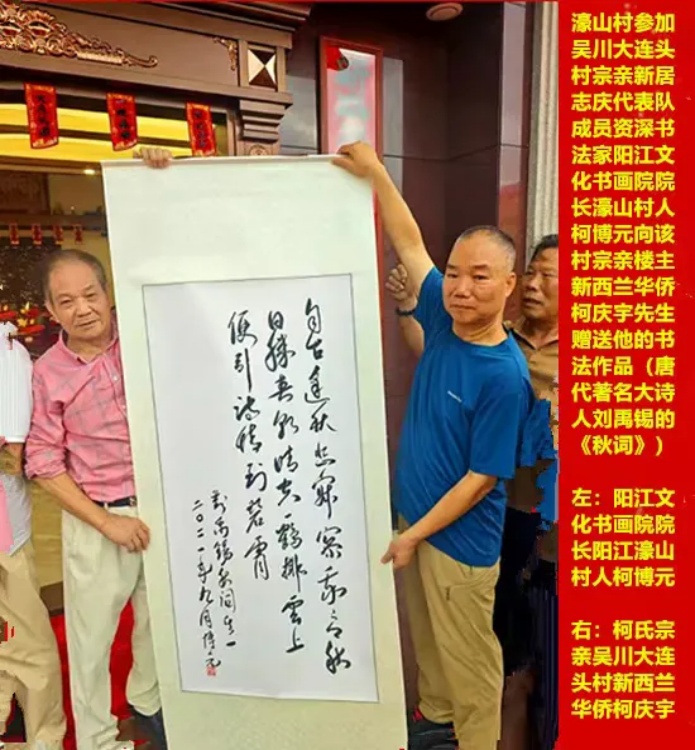 自古逢秋悲寂寥我言秋
日勝春朝晴空一鶴排雲上
便引诗情到碧霄
刘禹锡秋词其一
二〇二一年九月博元
濠山村参加
吴川大连头
村宗亲新居
志庆代表队
成员资深书
法家阳江文
化书画院院
长濠山村人
柯博元向该
村宗亲楼主
新西兰华侨
柯庆宇先生
赠送他的书
法作品（唐
代著名大诗
人刘禹锡的
《秋词》）
左：阳江文
化书画院院
长阳江濠山
村人柯博元
右：柯氏宗
亲吴川大连
头村新西兰
华侨柯庆宇